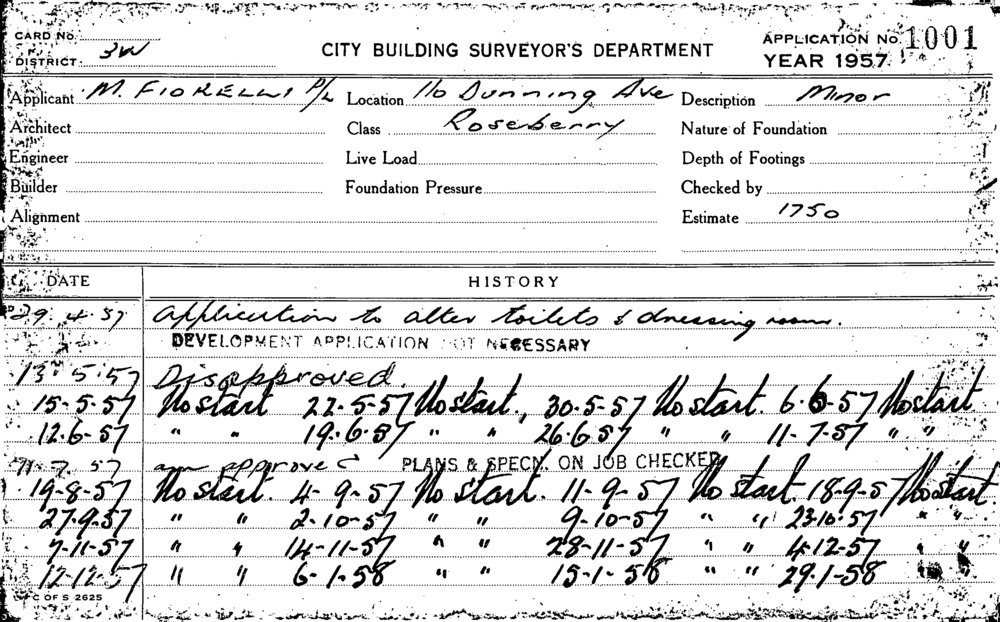 CARD No.
DISTRICT 3W
CITY BUILDING SURVEYOR'S DEPARTMENT
APPLICATION No. 1001
YEAR 1957
Applicant M. FIORELLI P/L Location 110 Dunning Ave Description Minor
Architect Class Roseberry Nature of Foundation
Engineer Live Load Depth of Footings
Builder Foundation Pressure Checked by
Alignment Estimate 1750
DATE HISTORY
29.4.57 Application to alter toilets & dressing room.
DEVELOPMENT APPLICATION NOT NECESSARY
13.5.57 Disapproved.
15-5-57 No start 22-5-57 No start, 30-5-57 No start. 6-6-57 No start
12.6-57 " " 19.6.57 " " 26.6.57 " " 11-7-57 " "
11-7.57 approved PLANS & SPECN. ON JOB CHECKED
19-8-57 No start. 4-9-57 No start. 11-9-57 No start. 18-9-57 No start
27-9-57 " " 2-10-57 " " 9-10-57 " " 23-10-57 " "
7-11-57 " " 14-11-57 " " 28-11-57 " " 4-12-57 " "
12-12-57 " " 6-1-58 " " 15-1-58 " " 29.1-58 " "
C OF S 2625